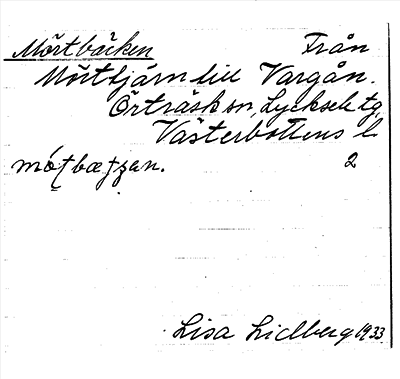 Mörtbäcken Från
Mörttjärn till Vargån.
Örträsk sn, Lycksele tg
Västerbottens l.
2
Lisa Lidberg 1933